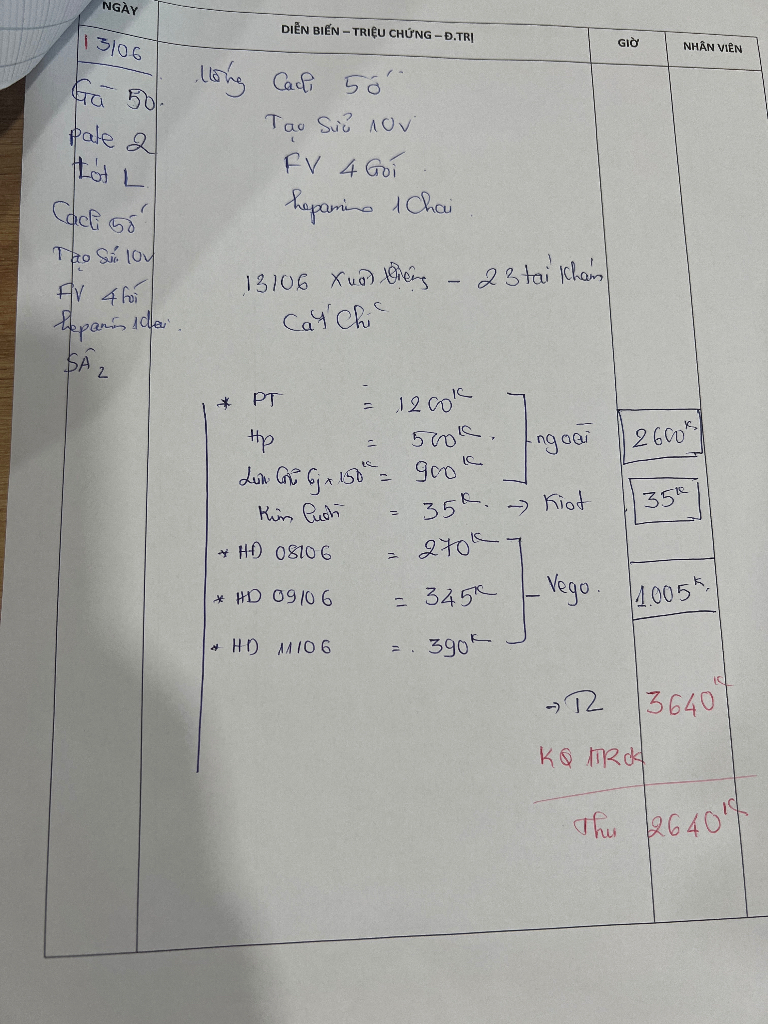 NGÀY
DIỄN BIẾN – TRIỆU CHỨNG – Đ.TRỊ
GIỜ
NHÂN VIÊN
13/06
Gà 50
pate 2
Lót L
Cacli 5 ố
Tạo Sữ 10v
FV 4 Gói
hepamino 1 chai
SÂ 2
Uống Cacli 5 ố
Tạo Sữ 10v
FV 4 Gói
hepamino 1 Chai
13/06 Xuất Viện – 23 tái khám
Cắt Chỉ
* PT = 1200K
Hp = 500K
Lưu 6j x 150K = 900K
ngoài
2600K
= 35K → Kiot
35K
* HD 08/06 = 270K
* HD 09/06 = 345K
* HD 11/06 = 390K
Vego.
1.005K
→ 3640K
KQ
Thu 2640K